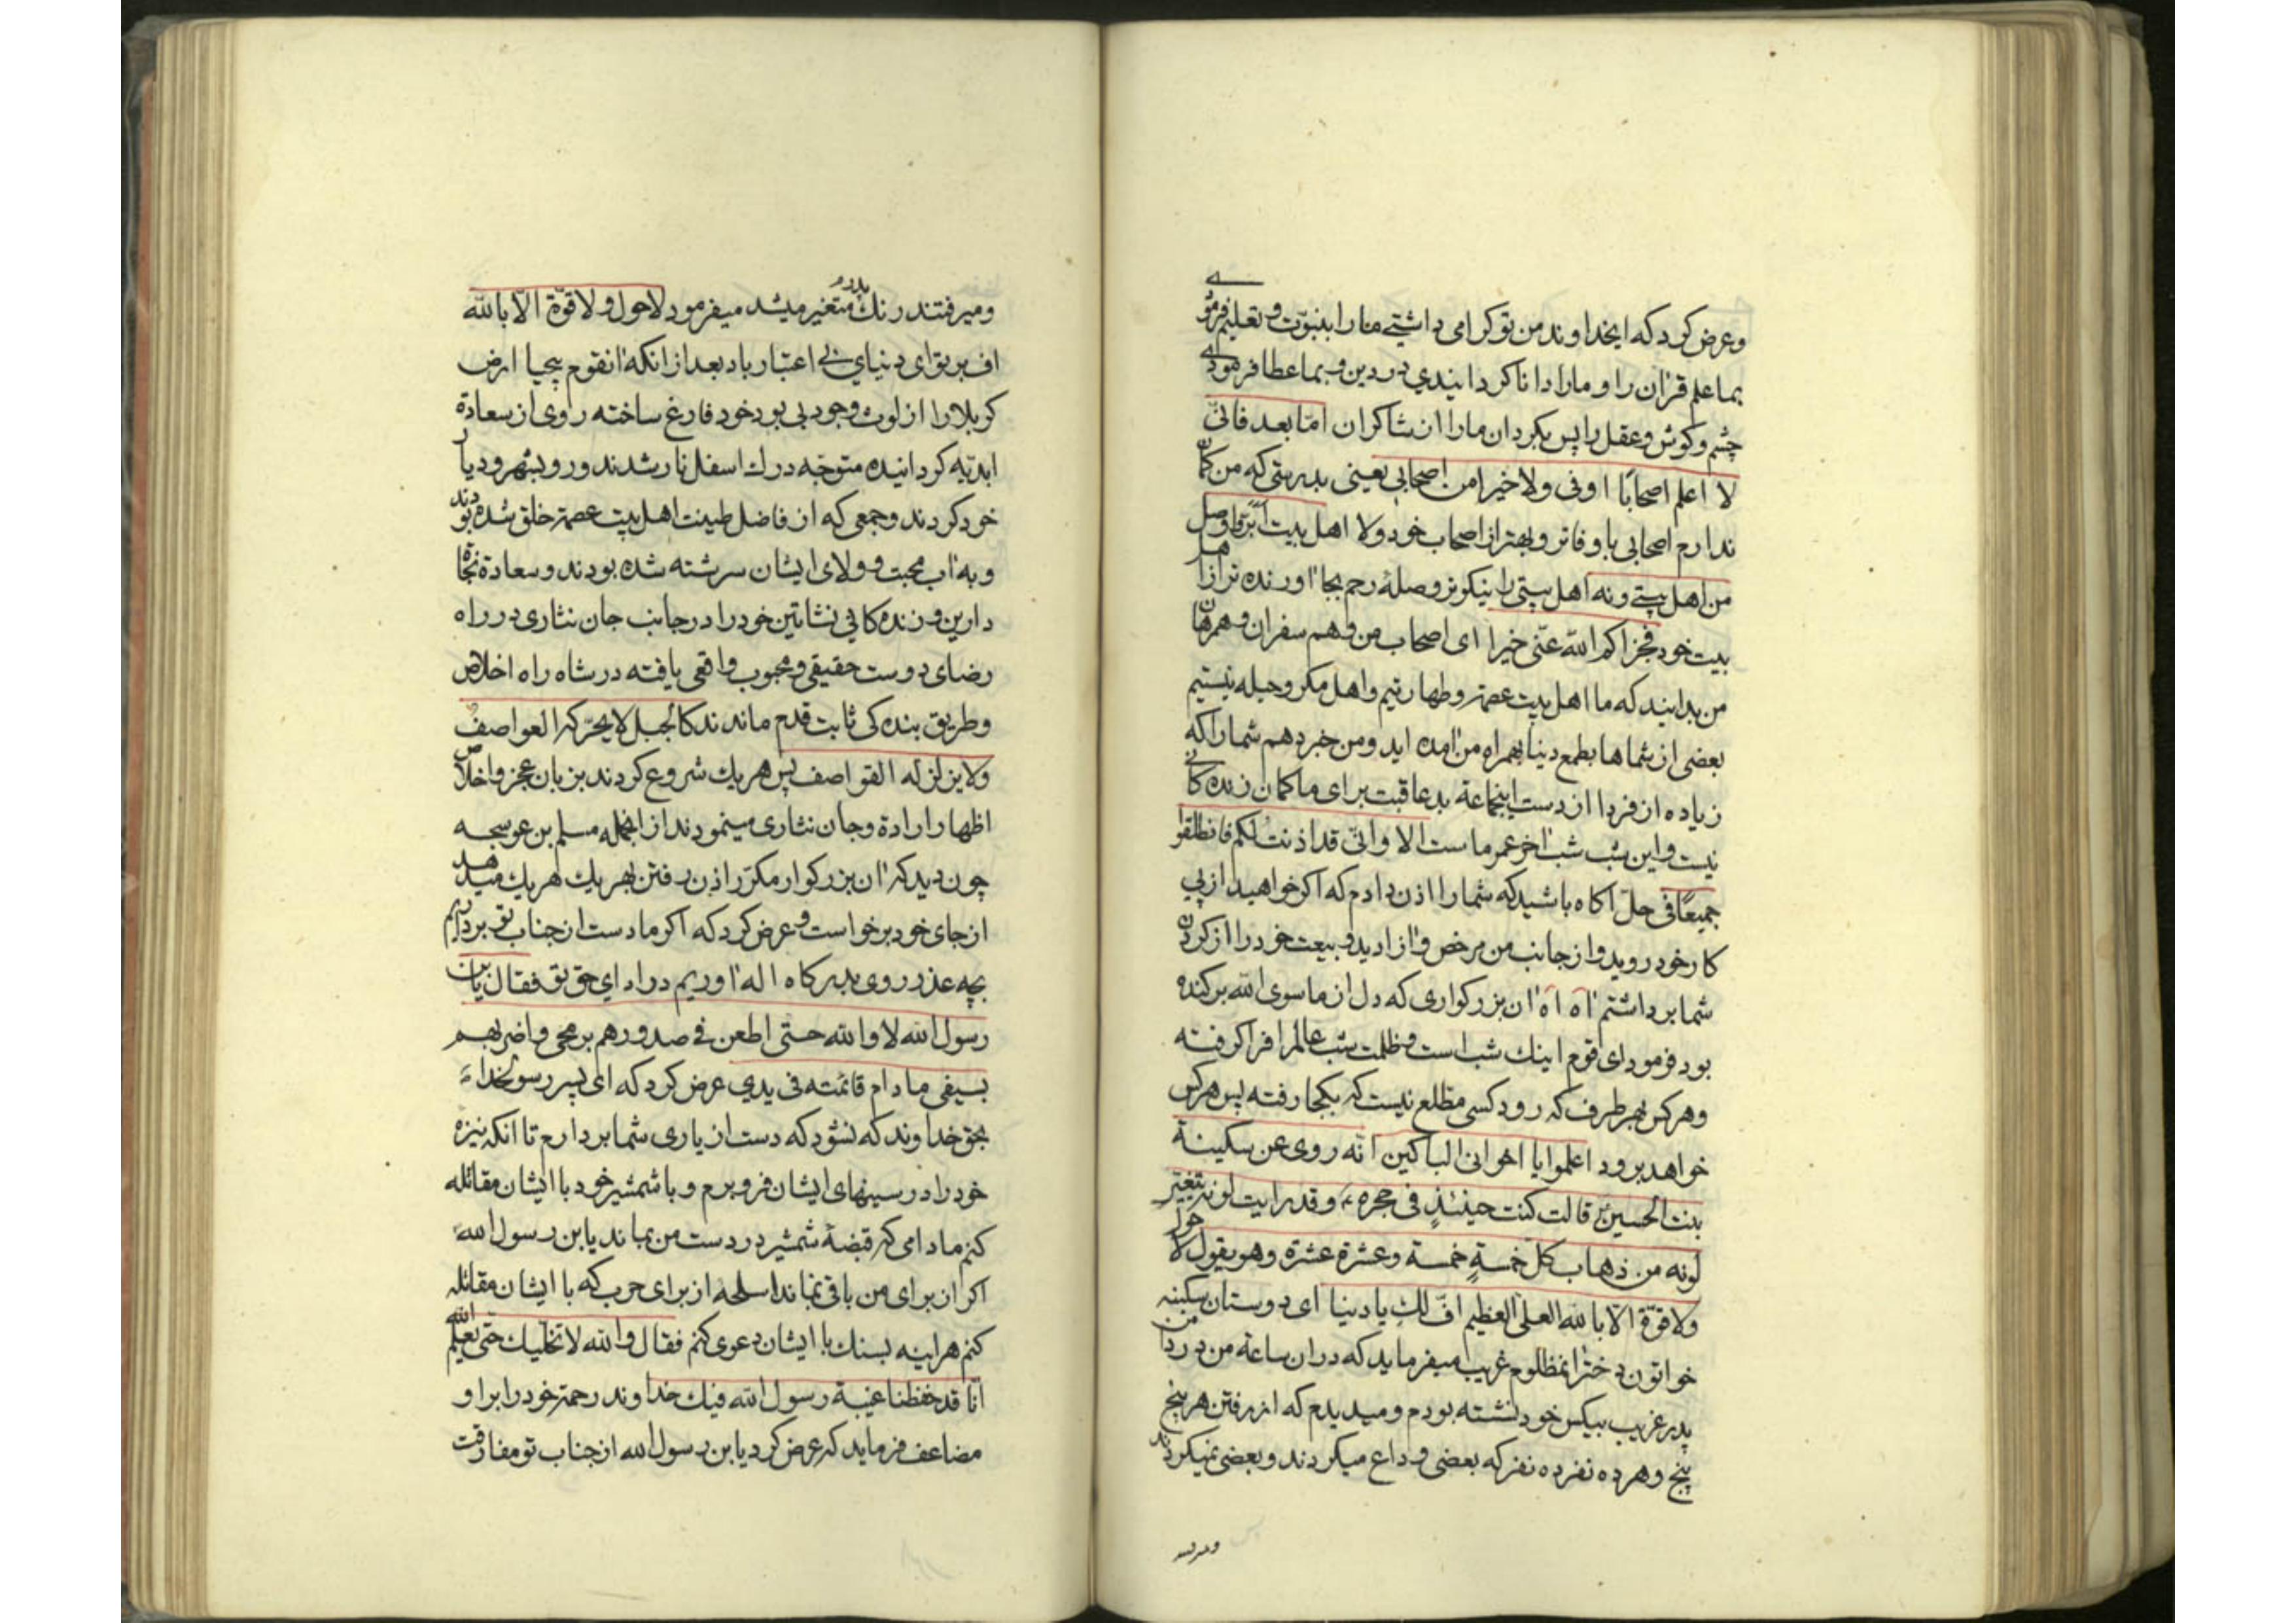 وعرض کرد که ایخداوند من تو کرامی داشتے ما را بنبوّت و تعلیم فرمودے
بما علم قران را و ما را دانا کردانیدی در دین و بما عطا فرمودے
چشم و کوش و عقل را پس بکردان ما را از شاکران امّا بعد فانّی
لا اعلم اصحابًا اوفی ولا خیرا من اصحابی یعنی بدرستی که من کمان
ندارم اصحابی با وفاتر و بهتر از اصحاب خود ولا اهل بیت ابرّ و اوصل
من اهل بیتے و نه اهل بیتی را نیکوتر و صلهٔ رحم بجا اورنده تر از اهل
بیت خود فجزاکم الله عنّی خیرا ای اصحاب من و هم سفران و همرهان
من بدانید که ما اهل بیت عصمة و طهارتیم و اهل مکر و حیله نیستیم
بعضی از شماها بطمع دنیا بهمراه من امده اید و من خبر دهم شما را که
زیاده از فردا از دست اینجماعة بدعاقبت برای ما کمان زنده کانے
نیست و این شب شب اخر عمر ماست الا وانّی قد اذنت لکم فانطلقوا
جمیعًا فی حلّ اکاه باشید که شما را اذن دادم که اکر خواهید از پی
کار خود روید و از جانب من مرخص و ازادید و بیعت خود را از کردن
شما برداشتم اه اه ان بزرکواری که دل از ما سوی الله برکنده
بود فرمود ای قوم اینك شب است و ظلمت شب عالم را فرا کرفته
و هر کس بهر طرف که رود کسی مطلع نیست که بکجا رفته پس هر کس
خواهد برود اعلموا یا اخوانی الباکین انّه روی عن سکینة
بنت الحسین قالت کنت حینئذٍ فی حجره و قد رایت لونه یتغیّر
لونه من ذهاب کلّ خمسةٍ خمسة و عشرة عشرة و هو یقول لا حول
ولا قوّة الّا بالله العلی العظیم افّ لك یا دنیا ای دوستان سکینه
خواتون دختر انمظلوم غریب میفرماید که در ان ساعة من در دامن
پدر غریب بیکس خود نشسته بودم و میدیدم که از رفتن هر پنج
پنج و هر ده نفر ده نفر که بعضی وداع میکردند و بعضی نمیکردند
و میرفتند رنك متغیر میشد میفرمود لا حول و لا قوّة الّا بالله
اف بر تو ای دنیای بی اعتبار باد بعد از انکه انقوم بیحیا ارض
کربلا را از لوث وجود بی بود خود فارغ ساخته روی از سعادة
ابدیّه کردانیده متوجّه درك اسفل نار شدند و رو بشهر و دیار
خود کردند و جمعی که از فاضل طینت اهل بیت عصمة خلق شده بودند
و به اب محبت و ولای ایشان سرشته شده بودند و سعادة نجاة
دارین و زنده کانی نشاتین خود را در جانب جان نثاری در راه
رضای دوست حقیقی و محبوب واقعی یافته در شاه راه اخلاص
و طریق بنده کی ثابت قدم ماندند کالجبل لا یحرّکه العواصف
ولا یزلزله القواصف پس هر یك شروع کردند بزبان عجز و اخلاص
اظهار ارادة و جان نثاری مینمودند از انجمله مسلم بن عوسجه
چون دید که ان بزرکوار مکرّر اذن رفتن بهر یك هر یك میدهد
از جای خود برخواست و عرض کرد که اکر ما دست از جناب تو برداریم
بچه عذر روی بدرکاه اله اوریم در ادای حق تو فقال یابن
رسول الله لا والله حتی اطعن فی صدورهم برمحی و اضربهم
بسیفی ما دام قائمته فی یدی عرض کرد که ای پسر رسولخدا
بحق خداوند که نشود که دست از یاری شما بردارم تا انکه نیزه
خود را در سینهای ایشان فرو برم و با شمشیر خود با ایشان مقاتله
کنم مادامی که قبضهٔ شمشیر در دست من بماند یابن رسول الله
اکر از برای من باقی نماند اسلحه از برای حرب که با ایشان مقاتله
کنم هراینه بسنك با ایشان دعوی کنم فقال والله لا تخلیك حتی یعلم الله
انّا قد حفظنا غیبة رسول الله فیك خداوند رحمة خود را بر او
مضاعف فرماید که عرض کرد یابن رسول الله از جناب تو مفارقت